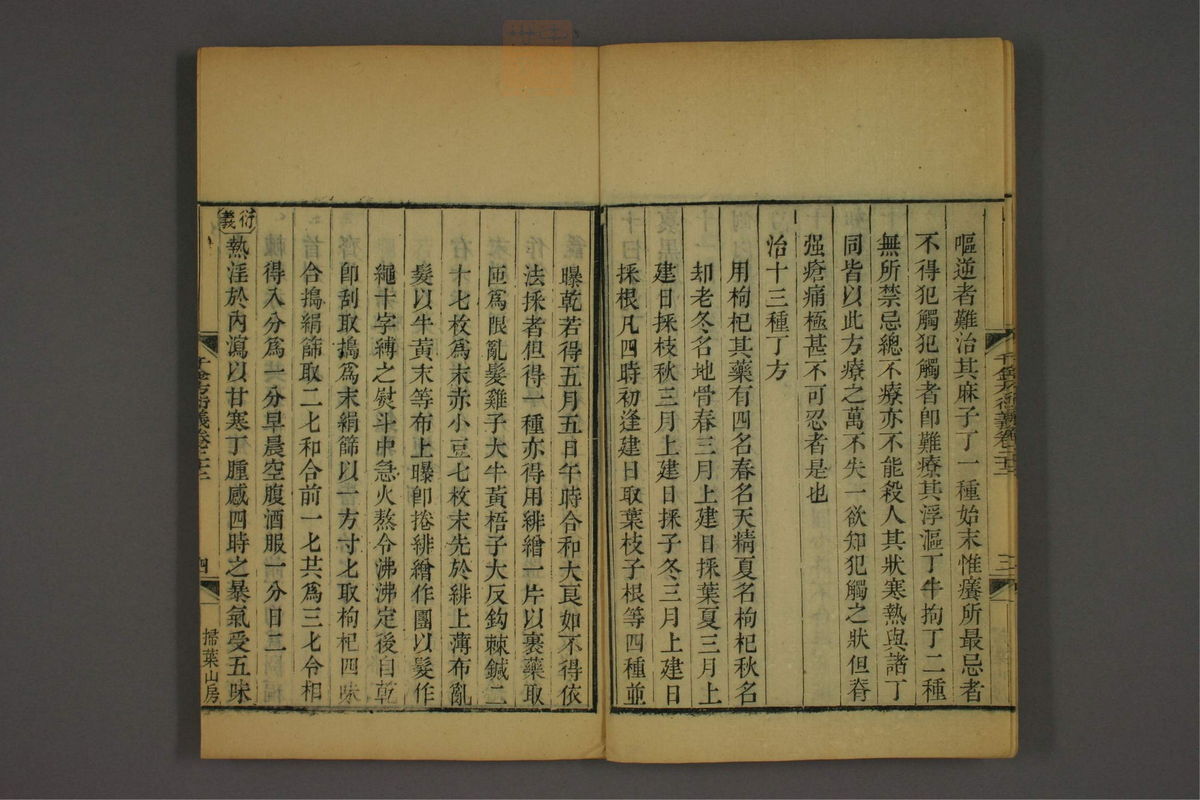 嘔逆者難治其麻子丁一種始末惟癢所最忌者
不得犯觸犯觸者卽難療其浮漚丁牛拘丁二種
無所禁忌總不療亦不能殺人其狀寒熱與諸丁
同皆以此方療之萬不失一欲知犯觸之狀但脊
强瘡痛極甚不可忍者是也
治十三種丁方
用枸杞其藥有四名春名天精夏名枸杞秋名
却老冬名地骨春三月上建日採葉夏三月上
建日採枝秋三月上建日採子冬三月上建日
採根凡四時初逢建日取葉枝子根等四種並
曝乾若得五月五日午時合和大良如不得依
法採者但得一種亦得用緋繒一片以裹藥取
匝爲限亂髮雞子大牛黃梧子大反鈎棘鍼二
十七枚爲末赤小豆七枚末先於緋上薄布亂
髮以牛黃末等布上曝卽捲緋繒作團以髮作
繩十字縛之熨斗中急火熬令沸沸定後自乾
卽刮取搗爲末絹篩以一方寸匕取枸杞四味
合搗絹篩取二匕和合前一匕共爲三匕令相
得入分爲一分早晨空腹酒服一分日二
衍義
熱淫於內瀉以甘寒丁腫感四時之暴氣受五味
千金方衍義卷二十二
四
掃葉山房